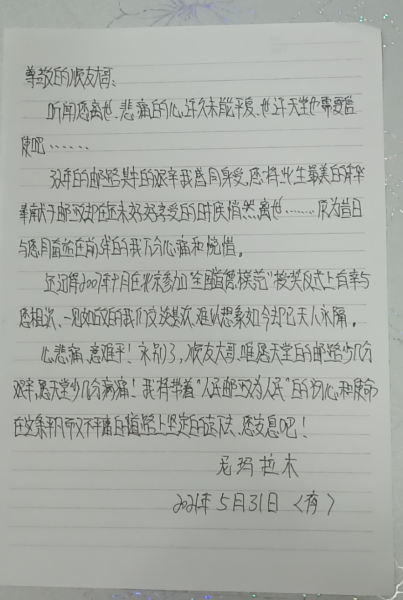 尊敬的顺友哥：
听闻您离世、悲痛的心许久未能平复、也许天堂也需要信
使吧……
32年的邮路其中的艰辛我感同身受，您将此生最美的年华
奉献于邮政却在还未好好享受的时候悄然离世……作为昔日
与您肩并肩在前行的我十分心痛和惋惜。
还记得2007年9月在北京参加"全国道德模范"颁奖仪式上有幸与
您相识、一见如故的我们交谈甚欢、难以想象如今却已天人永隔。
心悲痛、意难平！永别了，顺友大哥、唯愿天堂的邮路少几分
艰辛，愿天堂少几分病痛！我将带着"人民邮政为人民"的初心和使命
在这条平凡而又不平庸的道路上坚定的走下去、您安息吧！
尼玛拉木
2021年5月31日〈夜〉